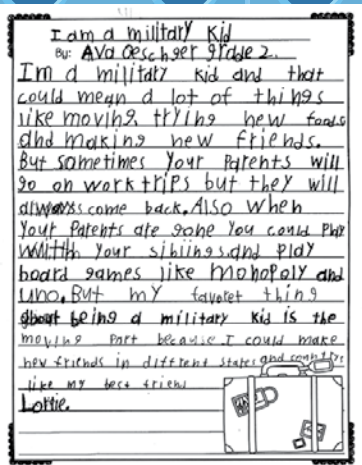 I am a military Kid
By: Ava Oeschger grade 2.
I'm a military kid and that
could mean a lot of things
like moving, trying new foods
and making new friends.
But sometimes your Parents will
go on work trips but they will
always come back. Also when
your Parents are gone you could Play
with your siblings. and Play
board games like Monopoly and
Uno. But my favoret thing
about being a military kid is the
moving Part because I could make
new friends in different states and countrys
like my best friend
Lottie.